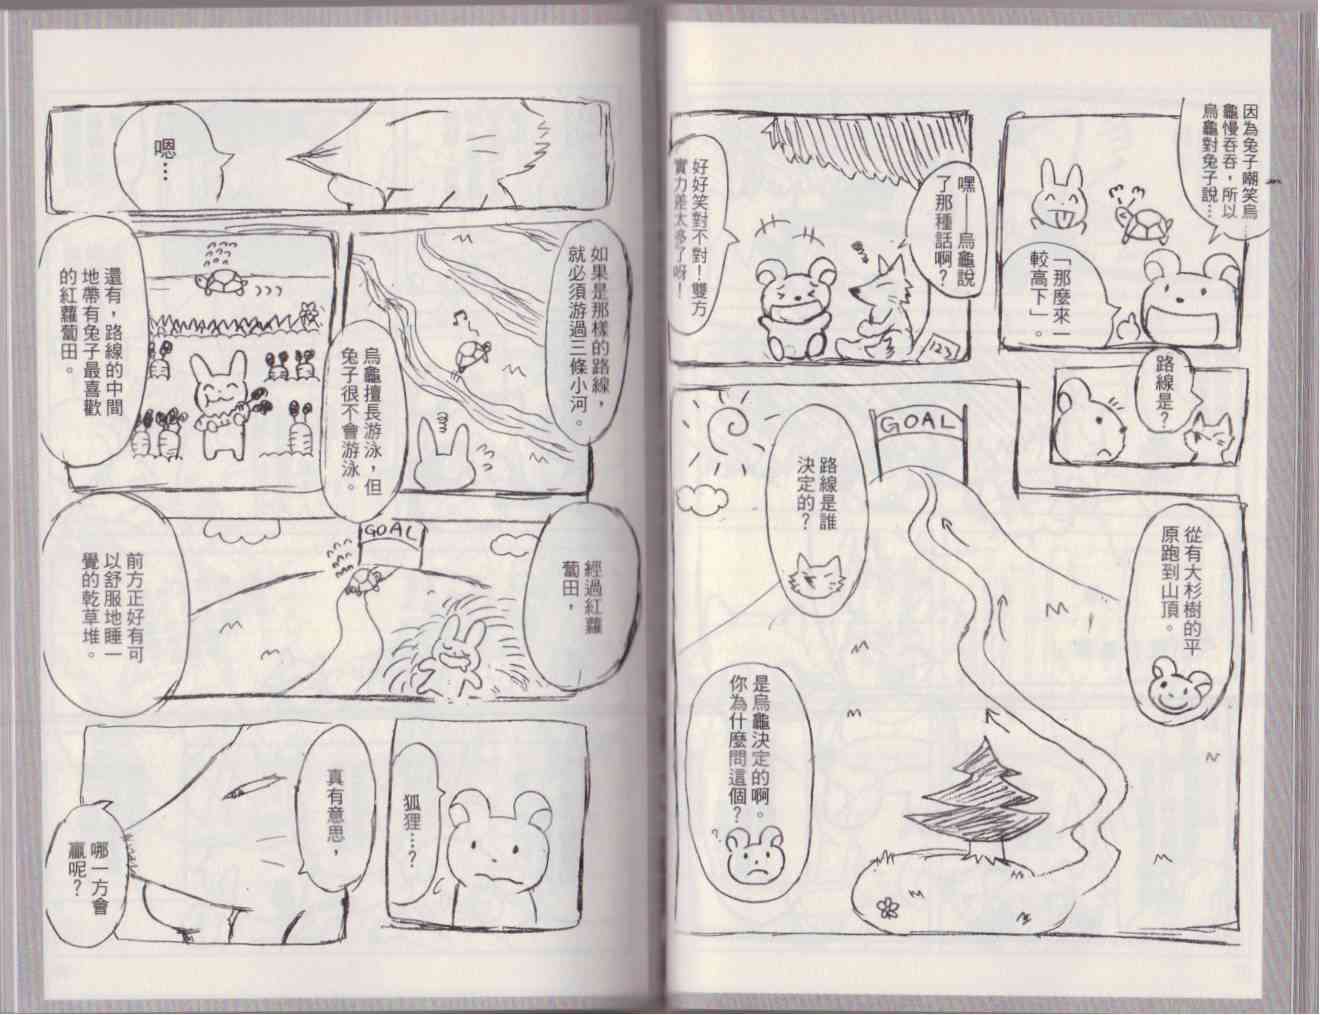 因為兔子嘲笑烏
龜慢吞吞，所以
烏龜對兔子說…
「那麼來一
較高下」。
嘿——烏龜說
了那種話啊？
好好笑對不對！雙方
實力差太多了呀！
123
路線是？
從有大杉樹的平
原跑到山頂。
GOAL
路線是誰
決定的？
是烏龜決定的啊。
你為什麼問這個？
嗯…
如果是那樣的路線，
就必須游過三條小河。
烏龜擅長游泳，但
兔子很不會游泳。
還有，路線的中間
地帶有兔子最喜歡
的紅蘿蔔田。
經過紅蘿
蔔田，
GOAL
前方正好有可
以舒服地睡一
覺的乾草堆。
狐狸…？
真有意思，
哪一方會
贏呢？